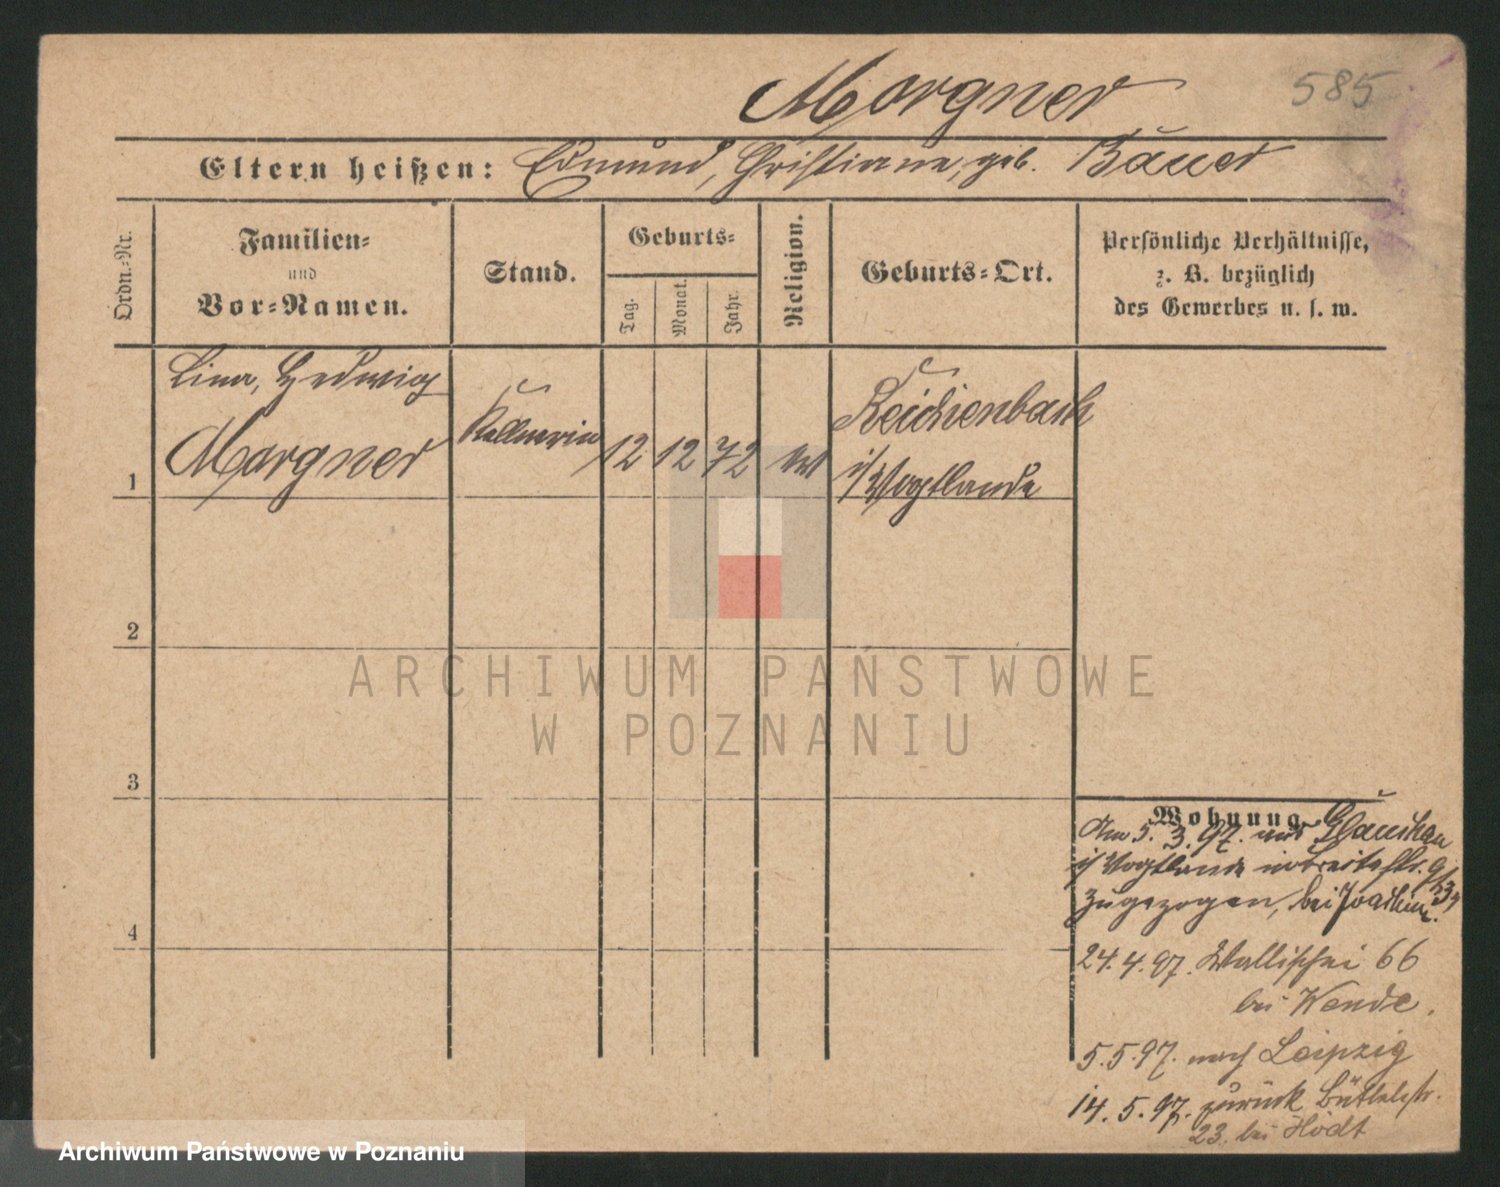 585
Morgner
Eltern heißen: Edmund, Christiane, geb. Bauer
Ordn.-Nr.
Familien-
und
Vor-Namen.
Stand.
Geburts-
Tag.
Monat.
Jahr.
Religion.
Geburts-Ort.
Persönliche Verhältnisse,
z. B. bezüglich
des Gewerbes u. s. w.
Lina, Hedwig
Morgner
Kellnerin
12 12 72
Reichenbach
i/Vogtlande
1
2
3
4
Wohnung
Am 5. 3. 97. aus
i/Vogtlande Breitestr.
zugezogen, bei Joachim.
24. 4. 97. Wallischei 66
bei Wende.
5. 5. 97. nach Leipzig
14. 5. 97. zurück Büttelstr.
23. bei Hödt
ARCHIWUM PAŃSTWOWE
W POZNANIU
Archiwum Państwowe w Poznaniu